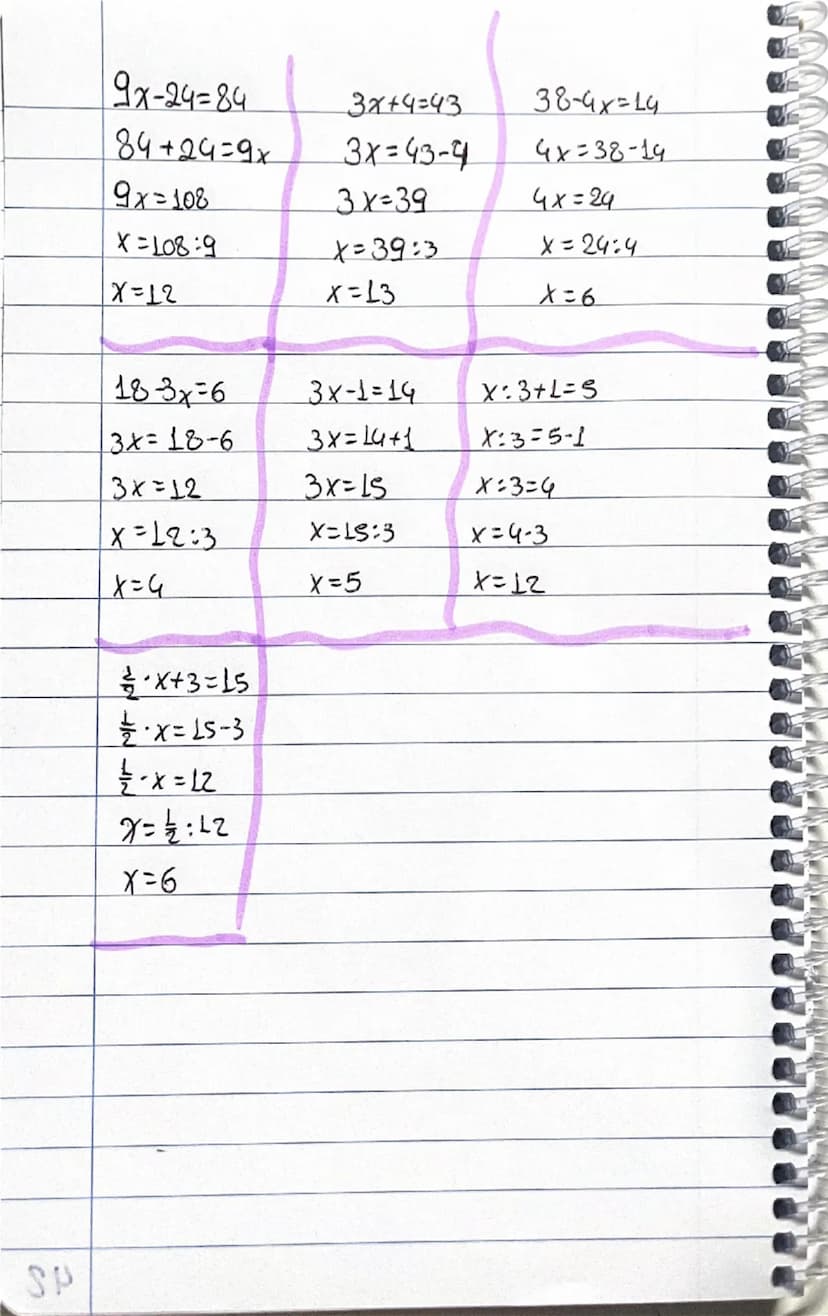 9x-24=84
84+24=9x
9x=108
x=108:9
x=12
3x+4=43
3x=43-4
3x=39
x=39:3
x=13
38-4x=14
4x=38-14
4x=24
x=24:4
x=6
18-3x=6
3x=18-6
3x=12
x=12:3
x=4
3x-1=14
3x=14+1
3x=15
x=15:3
x=5
x:3+1=5
x:3=5-1
x:3=4
x=4·3
x=12
1/2·x+3=15
1/2·x=15-3
1/2·x=12
x=1/2:12
x=6